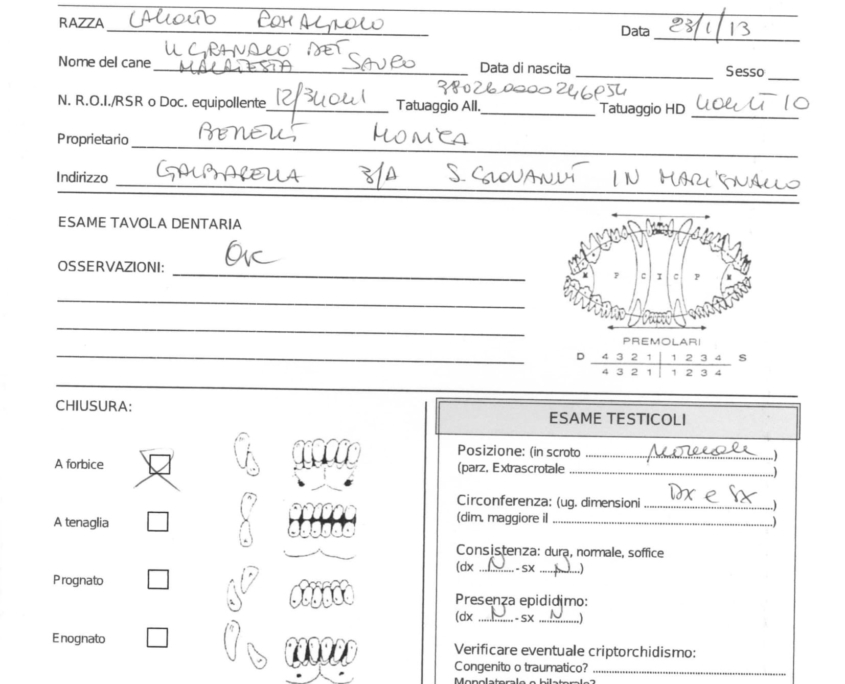 RAZZA LAGOTTO ROMAGNOLO Data 23/1/13
IL GRANDUCO DEI
Nome del cane MALATESTA SAURO Data di nascita Sesso
380260000246954
N. R.O.I./RSR o Doc. equipollente 12/34041 Tatuaggio All. Tatuaggio HD
Proprietario BENELLI MONICA
Indirizzo 3/A S. GIOVANNI IN MARIGNANO
ESAME TAVOLA DENTARIA
OSSERVAZIONI: OK
M P C I C P M
PREMOLARI
D 4 3 2 1 1 2 3 4 S
4 3 2 1 1 2 3 4
CHIUSURA:
A forbice
A tenaglia
Prognato
Enognato
ESAME TESTICOLI
Posizione: (in scroto normale)
(parz. Extrascrotale )
Circonferenza: (ug. dimensioni Dx e Sx)
(dim. maggiore il )
Consistenza: dura, normale, soffice
(dx N - sx N)
Presenza epididimo:
(dx N - sx N)
Verificare eventuale criptorchidismo:
Congenito o traumatico?
Monolaterale o bilaterale?